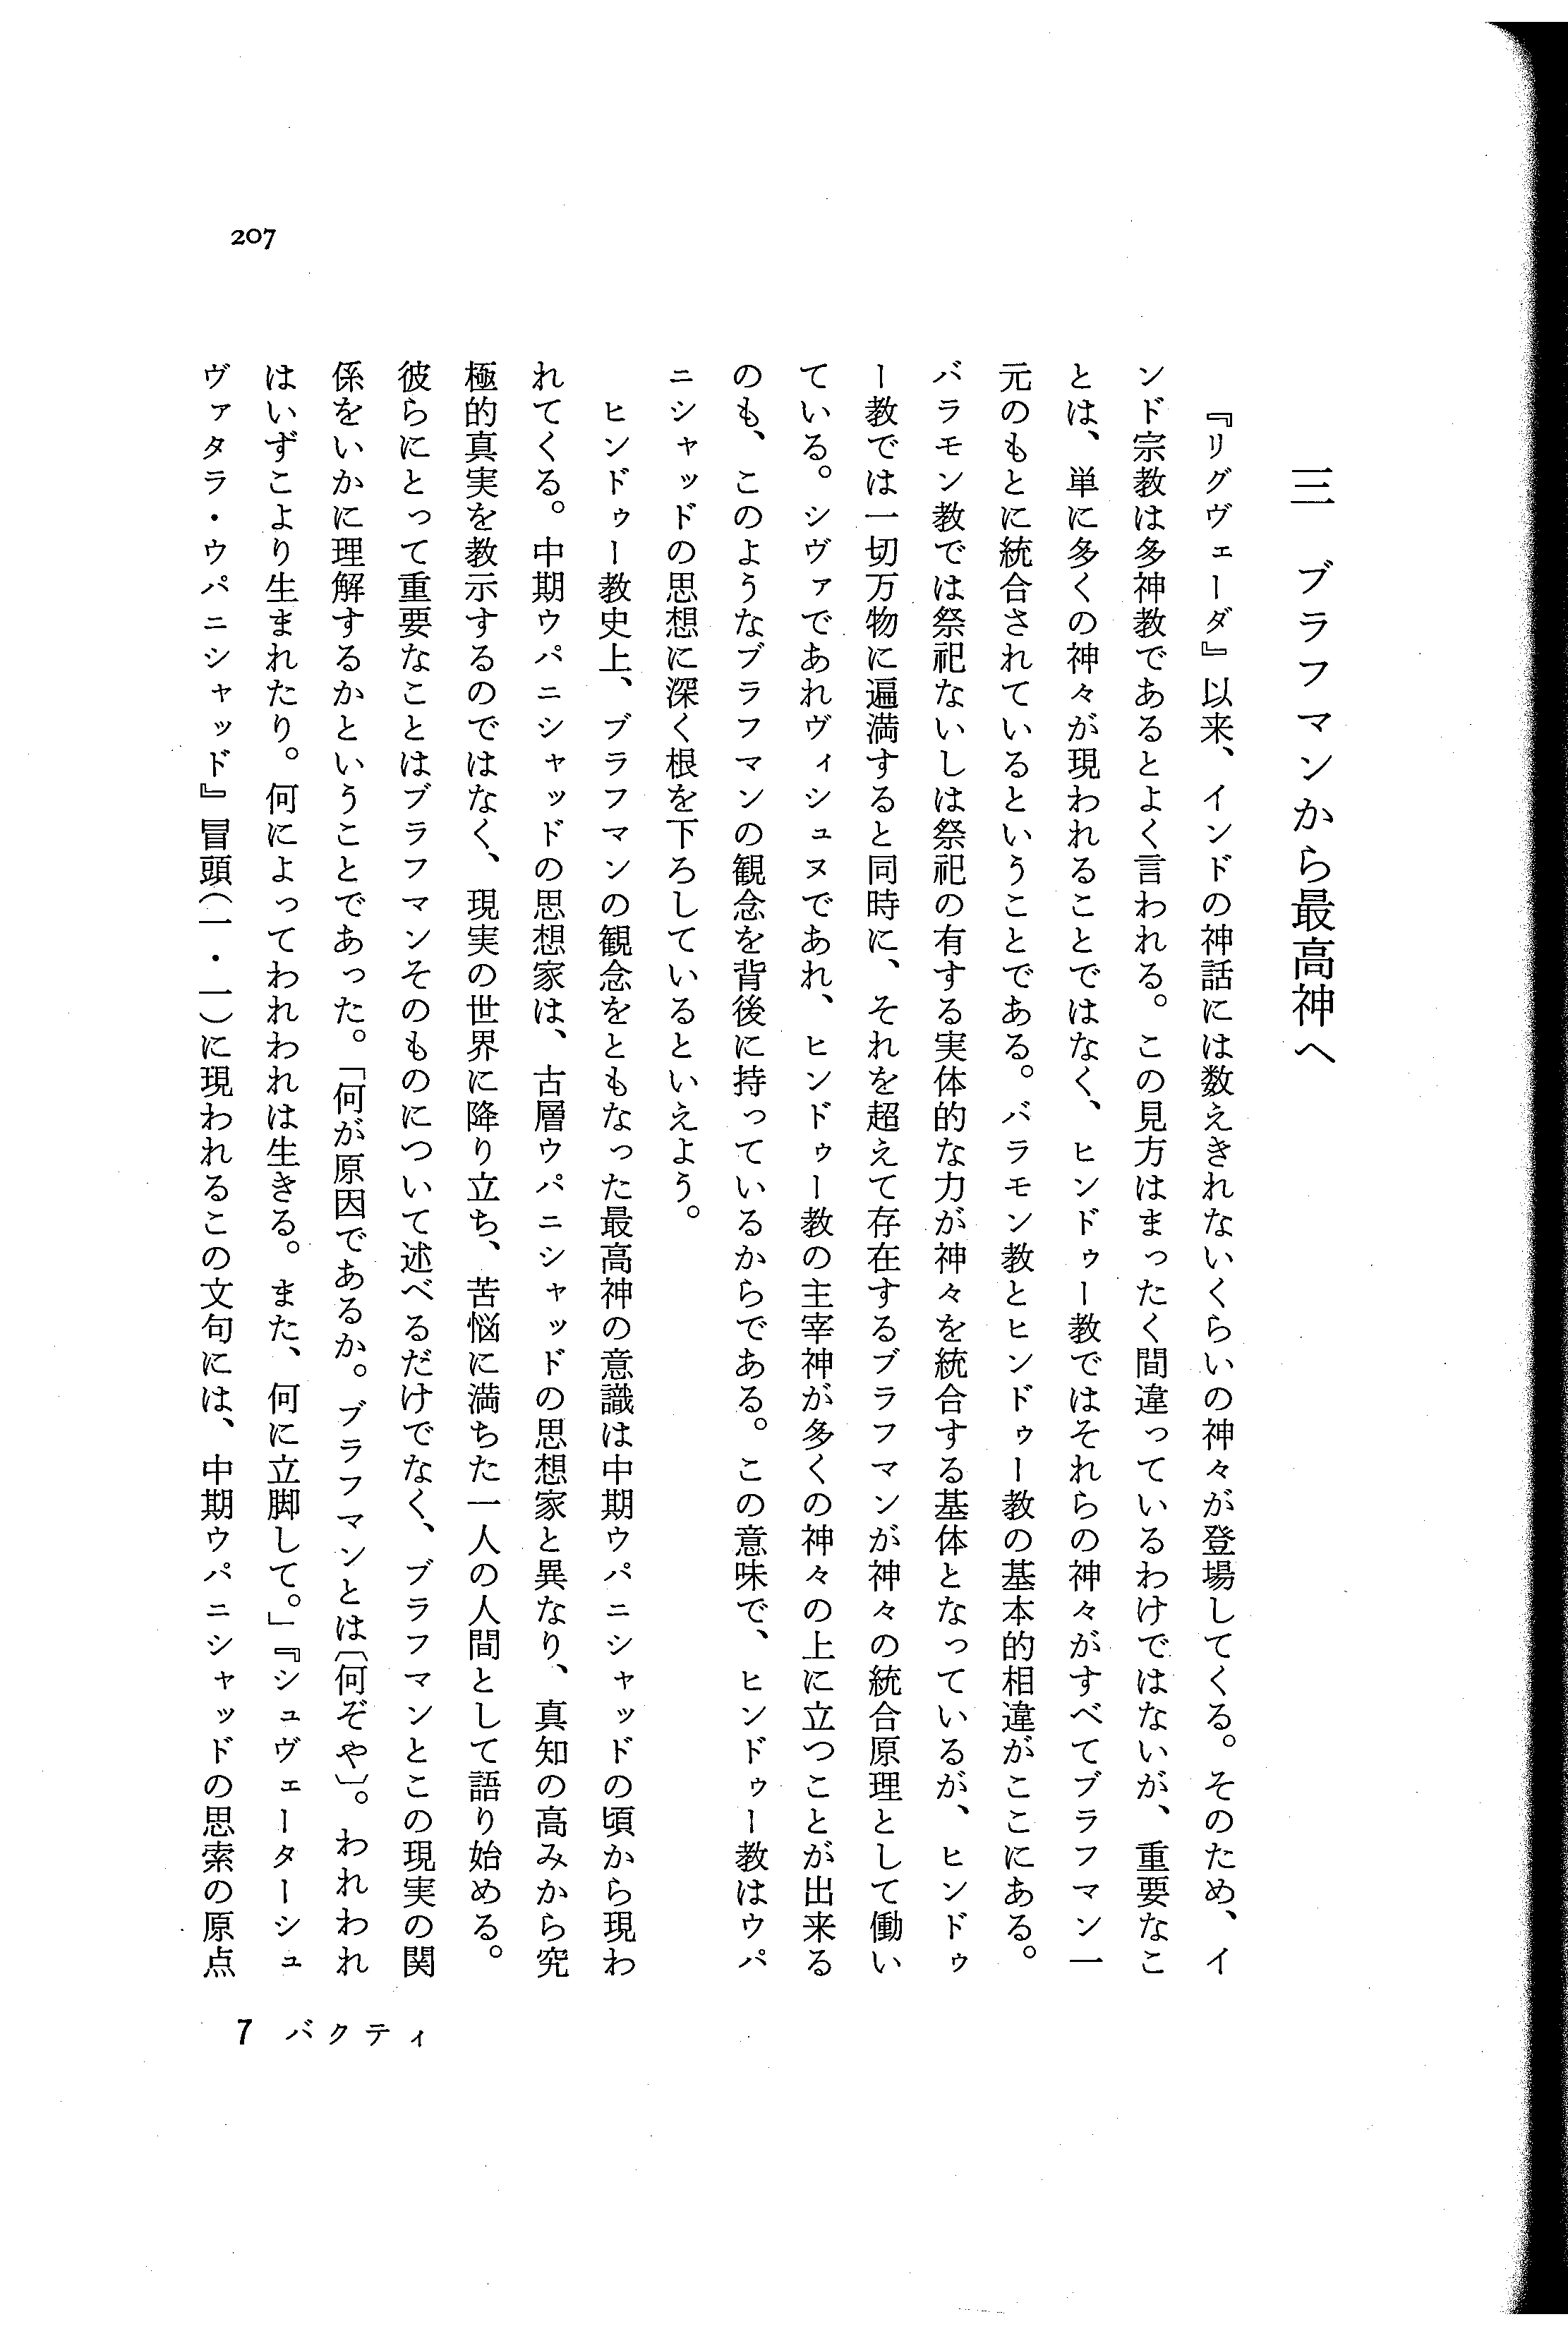 三 ブラフマンから最高神へ
『リグヴェーダ』以来、インドの神話には数えきれないくらいの神々が登場してくる。そのため、イ
ンド宗教は多神教であるとよく言われる。この見方はまったく間違っているわけではないが、重要なこ
とは、単に多くの神々が現われることではなく、ヒンドゥー教ではそれらの神々がすべてブラフマン一
元のもとに統合されているということである。バラモン教とヒンドゥー教の基本的相違がここにある。
バラモン教では祭祀ないしは祭祀の有する実体的な力が神々を統合する基体となっているが、ヒンドゥ
ー教では一切万物に遍満すると同時に、それを超えて存在するブラフマンが神々の統合原理として働い
ている。シヴァであれヴィシュヌであれ、ヒンドゥー教の主宰神が多くの神々の上に立つことが出来る
のも、このようなブラフマンの観念を背後に持っているからである。この意味で、ヒンドゥー教はウパ
ニシャッドの思想に深く根を下ろしているといえよう。
ヒンドゥー教史上、ブラフマンの観念をともなった最高神の意識は中期ウパニシャッドの頃から現わ
れてくる。中期ウパニシャッドの思想家は、古層ウパニシャッドの思想家と異なり、真知の高みから究
極的真実を教示するのではなく、現実の世界に降り立ち、苦悩に満ちた一人の人間として語り始める。
彼らにとって重要なことはブラフマンそのものについて述べるだけでなく、ブラフマンとこの現実の関
係をいかに理解するかということであった。「何が原因であるか。ブラフマンとは〔何ぞや〕。われわれ
はいずこより生まれたり。何によってわれわれは生きる。また、何に立脚して。」『シュヴェーターシュ
ヴァタラ・ウパニシャッド』冒頭(一・一)に現われるこの文句には、中期ウパニシャッドの思索の原点
207
7 バクティ